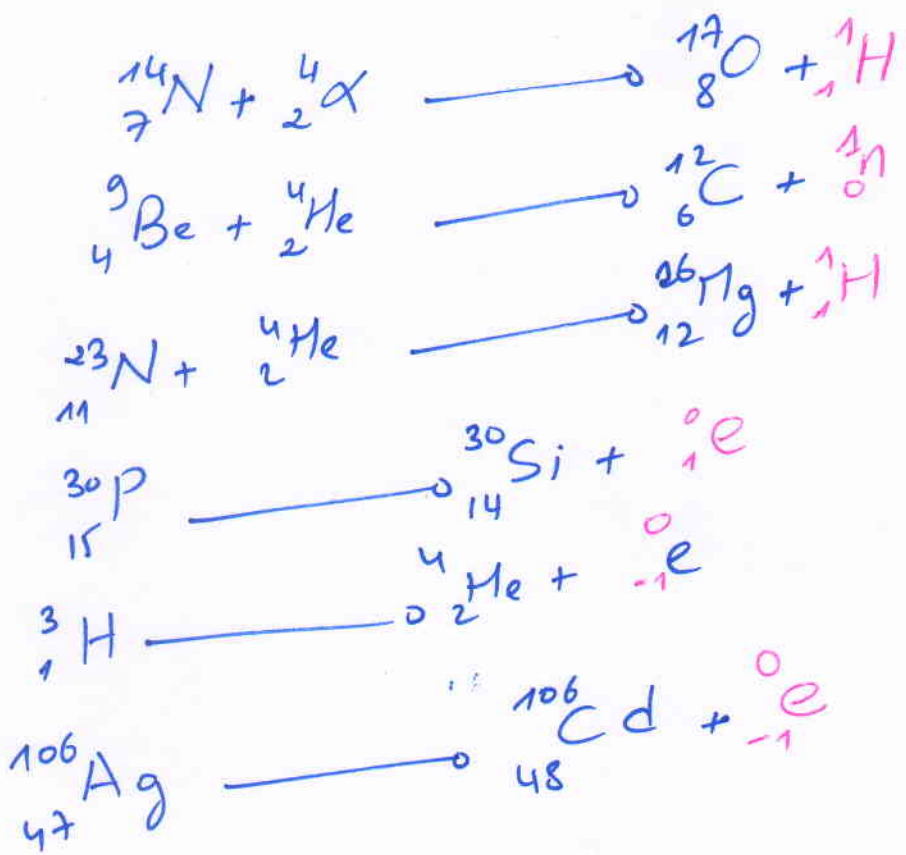 ¹⁴₇N + ⁴₂α → ¹⁷₈O + ¹₁H
⁹₄Be + ⁴₂He → ¹²₆C + ¹₀n
²³₁₁N + ⁴₂He → ²⁶₁₂Mg + ¹₁H
³⁰₁₅P → ³⁰₁₄Si + ⁰₁e
³₁H → ⁴₂He + ⁰₋₁e
¹⁰⁶₄₇Ag → ¹⁰⁶₄₈Cd + ⁰₋₁e